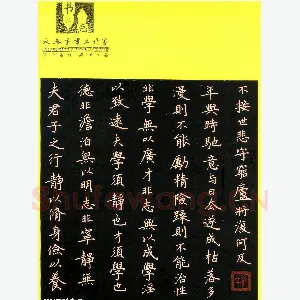 夫君子之行靜以修身儉以養
德非澹泊無以明志非寧靜無
以致遠夫學須靜也才須學也
非學無以廣才非志無以成學淫
漫則不能勵精險躁則不能治性
年與時馳意與去遂成枯落多
不接世悲守窮廬將復何及
Shufawang.CN